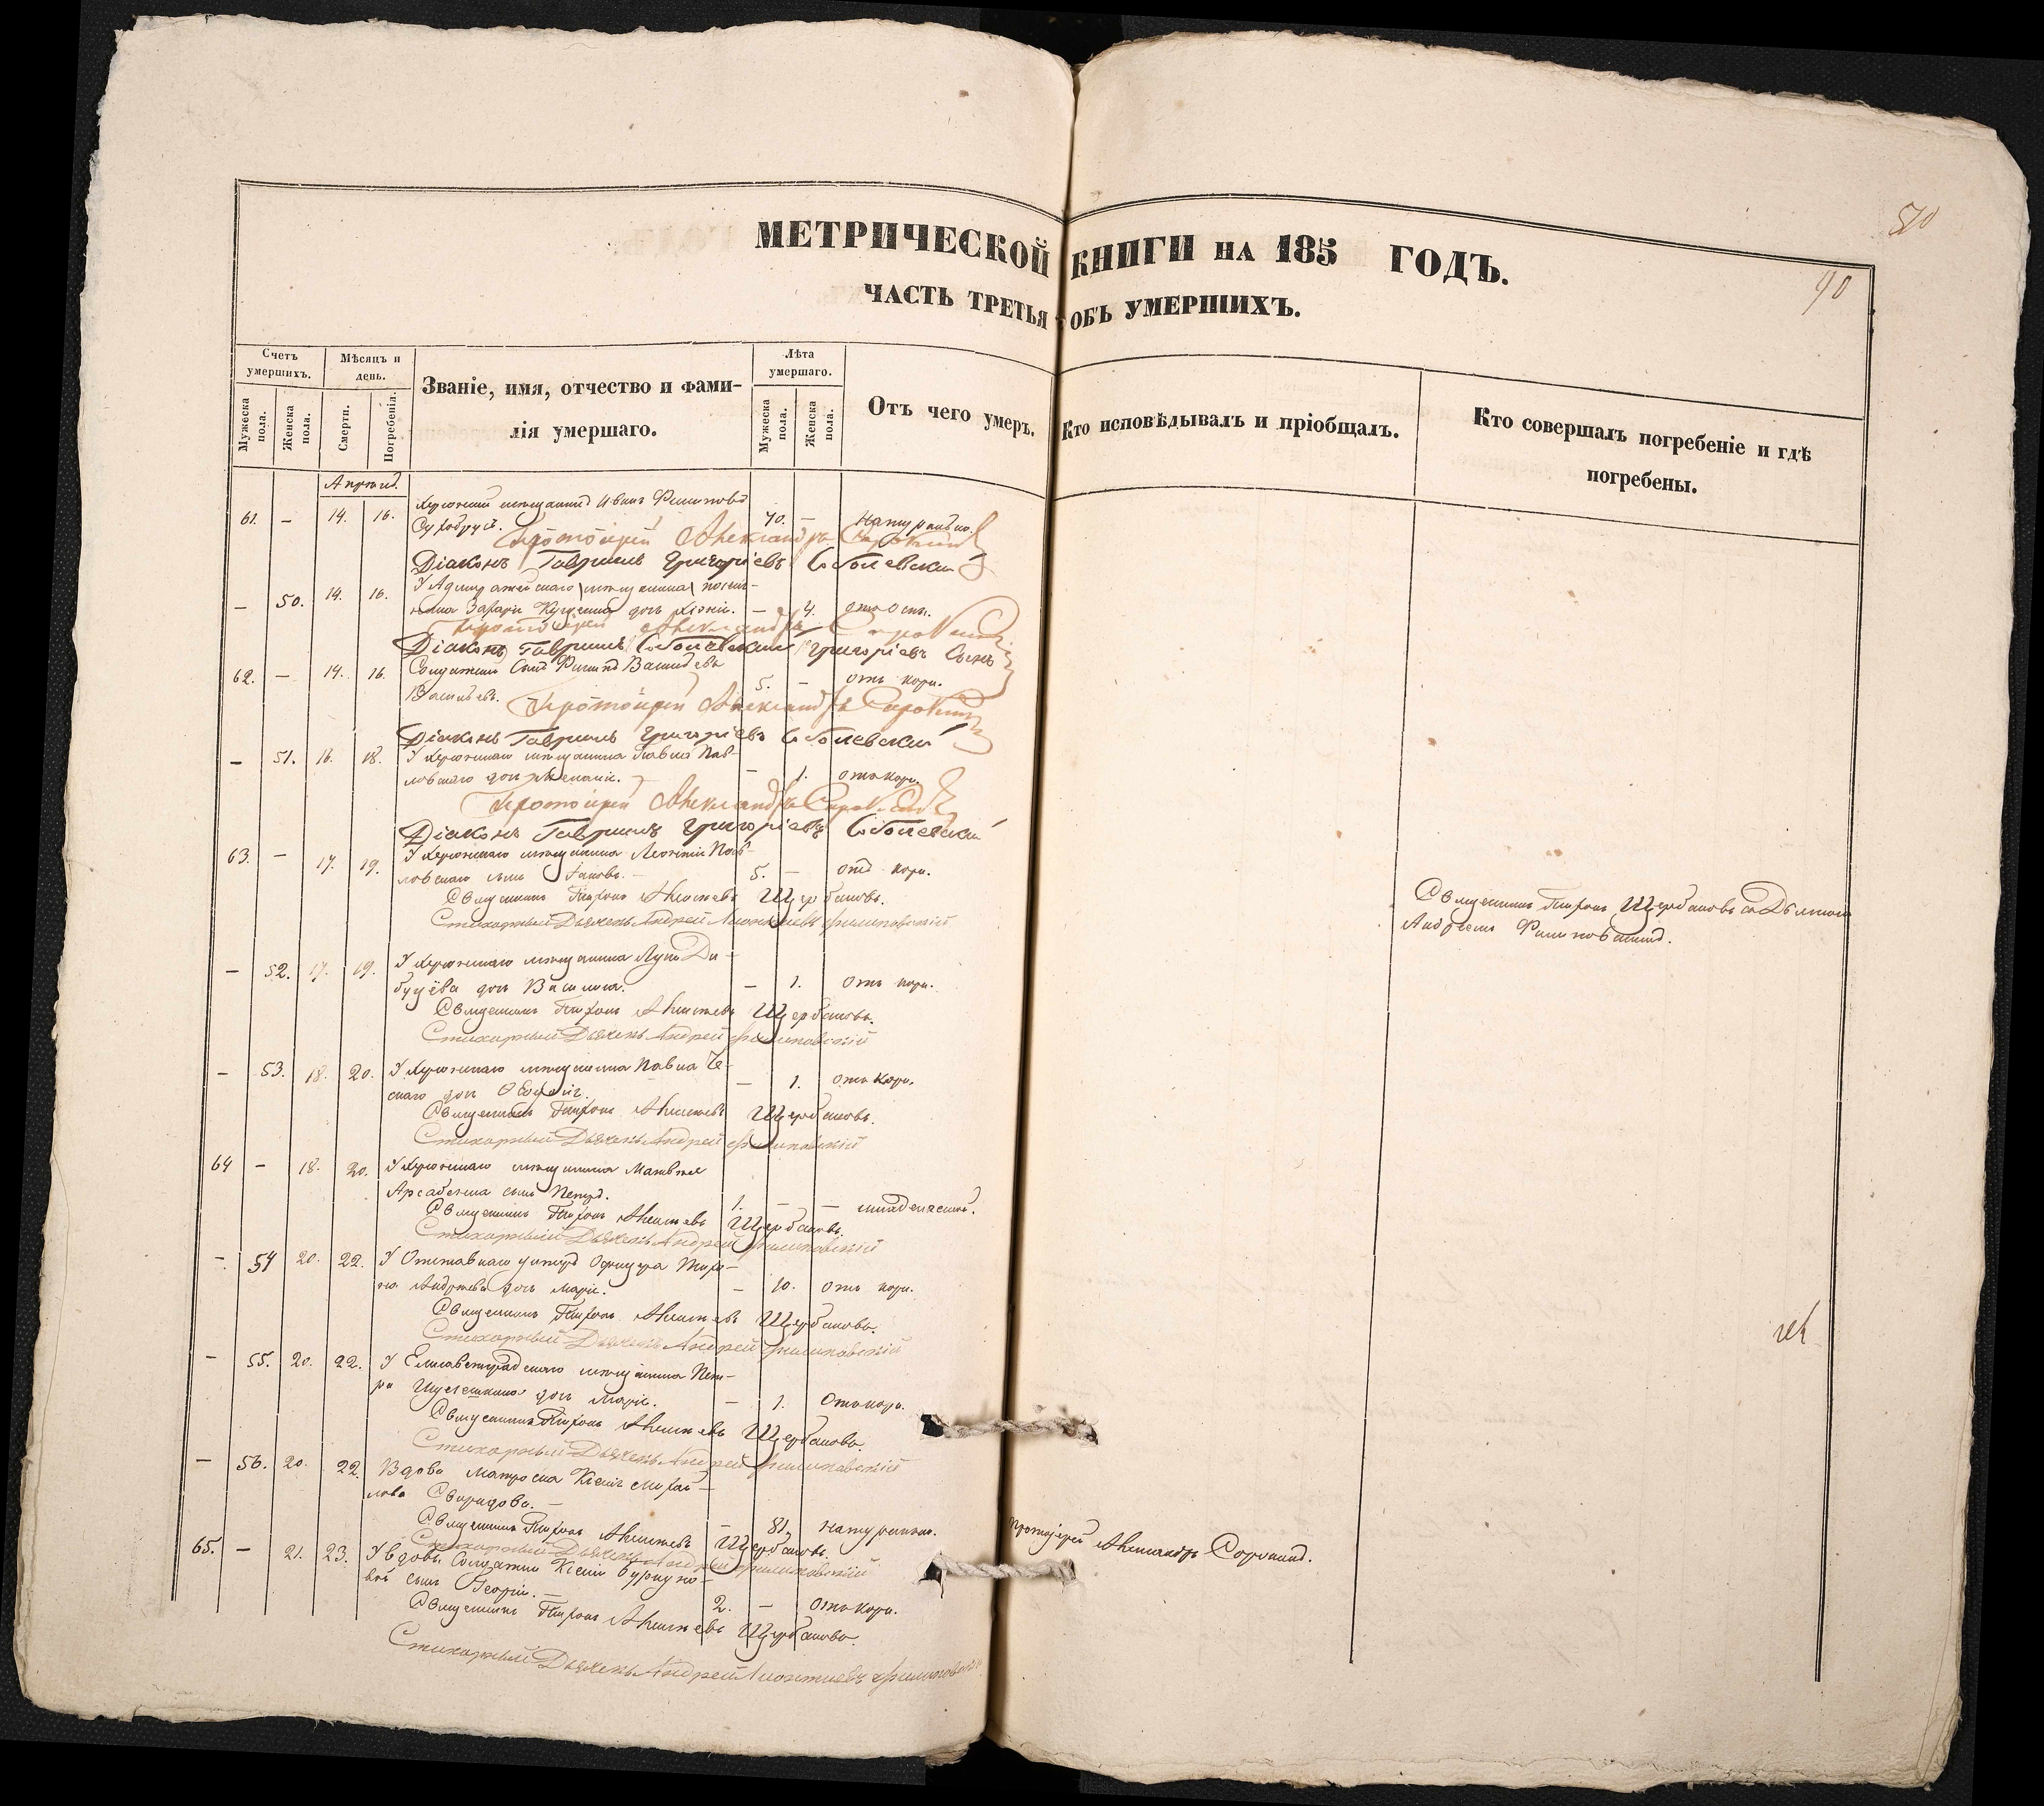 570
90
МЕТРИЧЕСКОЙ КНИГИ НА 185 ГОДЪ.
ЧАСТЬ ТРЕТЬЯ ОБЪ УМЕРШИХЪ.
Счетъ умершихъ.
Мѣсяцъ и день.
Званіе, имя, отчество и фами-
лія умершаго.
Лѣта умершаго.
Отъ чего умеръ.
Кто исповѣдывалъ и пріобщалъ.
Кто совершалъ погребеніе и гдѣ
погребены.
Мужеска пола.
Женска пола.
Смерти.
Погребенія.
Мужеска пола.
Женска пола.
61. – 14. 16. Херсонскій мѣщанинъ Иванъ Филиповъ
70. – Натурально.
Протоіерей Александръ Сорокинъ
Діаконъ Гавріилъ Григоріевъ Соболевскій
– 50. 14. 16. – 4. отъ оспы.
Протоіерей Александръ Сорокинъ
Діаконъ Гавріилъ Соболевскій Григоріевъ Сынъ
62. – 14. 16. Солдатскій сынъ Филипъ
Васильевъ. 5. – отъ кори.
Протоіерей Александръ Сорокинъ
Діаконъ Гавріилъ Григоріевъ Соболевскій
– 51. 16. 18. У Херсонскаго мѣщанина Павла Пав-
ловскаго дочь – 1. отъ кори.
Протоіерей Александръ Сорокинъ
Діаконъ Гавріилъ Григоріевъ Соболевскій
63. – 17. 19. У Херсонскаго мѣщанина Леонтія Пав-
ловскаго сынъ Іаковъ. 5. – отъ кори.
Священникъ Тихонъ Алексѣевъ Щербаковъ.
Стихарный Дьячекъ Андрей Леонтіевъ Филиповскій
Священникъ Тихонъ Щербаковъ съ Дьячкомъ
Андреемъ Филиповскимъ.
– 52. 17. 19. У Херсонскаго мѣщанина Луки Ди-
дочь Василиса. – 1. Отъ кори.
Священникъ Тихонъ Алексѣевъ Щербаковъ.
Стихарный Дьячекъ Андрей Филиповскій
– 53. 18. 20. У Херсонскаго мѣщанина Павла Че-
скаго дочь – 1. отъ кори.
Священникъ Тихонъ Алексѣевъ Щербаковъ.
Стихарный Дьячекъ Андрей Филиповскій
64 – 18. 20. У Херсонскаго мѣщанина Матвѣя
сынъ Петръ. 1. – – младенческой.
Священникъ Тихонъ Алексѣевъ Щербаковъ.
Стихарный Дьячекъ Андрей Филиповскій
– 54 20. 22. У Отставнаго унтеръ Офицера
Андреева дочь Марія. – 10. Отъ кори.
Священникъ Тихонъ Алексѣевъ Щербаковъ.
Стихарный Дьячекъ Андрей Филиповскій
– 55. 20. 22. У Елисаветградскаго мѣщанина Пет-
ра дочь Марія. – 1. Отъ кори.
Священникъ Тихонъ Алексѣевъ Щербаковъ.
Стихарный Дьячекъ Андрей Филиповскій
– 56. 20. 22. Вдова матроска Ксенія Михай-
лова Свиридова. – 81. натурально.
Протоіерей Александръ Сорокинъ.
Священникъ Тихонъ Алексѣевъ Щербаковъ.
Стихарный Дьячекъ Андрей Филиповскій
65. – 21. 23. У вдовы Солдатки Ксеніи
сынъ Георгій. 2. – отъ кори.
Священникъ Тихонъ Алексѣевъ Щербаковъ.
Стихарный Дьячекъ Андрей Леонтіевъ Филиповскій